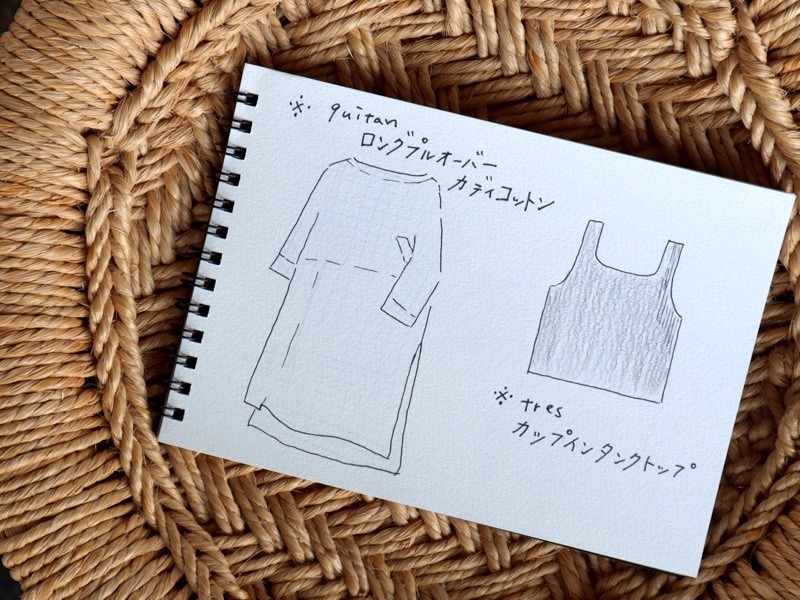 ※ quitan
ロングプルオーバー
カディコットン
※ tres
カップインタンクトップ